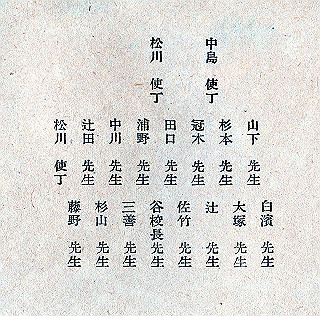 中島 使丁
松川 使丁
山下 先生
杉本 先生
冠木 先生
田口 先生
浦野 先生
中川 先生
辻田 先生
松川 使丁
白濱 先生
大塚 先生
辻 先生
佐竹 先生
谷校長先生
三善 先生
杉山 先生
藤野 先生